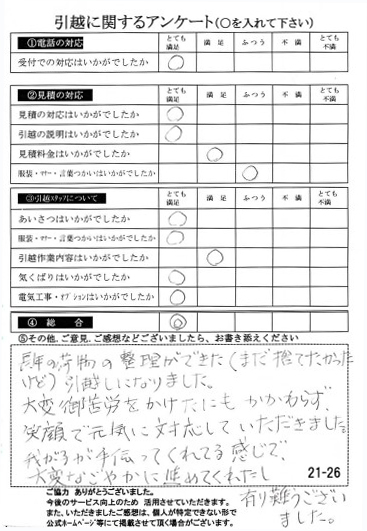 引越に関するアンケート(○を入れて下さい)
①電話の対応 とても満足 満足 ふつう 不満 とても不満
受付での対応はいかがでしたか ○
②見積の対応 とても満足 満足 ふつう 不満 とても不満
見積の対応はいかがでしたか ○
引越の説明はいかがでしたか ○
見積料金はいかがでしたか ○
服装・マナー・言葉つかいはいかがでしたか ○
③引越スタッフについて とても満足 満足 ふつう 不満 とても不満
あいさつはいかがでしたか ○
服装・マナー・言葉つかいはいかがでしたか ○
引越作業内容はいかがでしたか ○
気くばりはいかがでしたか ○
電気工事・オプションはいかがでしたか ○
④ 総 合 ◎
⑤その他、ご意見、ご感想などございましたら、お書き添えください
長年の荷物の整理ができた(まだ捨てたかった
けど)引越しになりました。
大変御苦労をかけたにもかかわらず、
笑顔で元気に対応していただきました。
我が子が手伝ってくれてる感じで、
大変なごやかに進めてくれたし
有り難うござい
ました。
21-26
ご協力 ありがとうございました。
今後のサービス向上のため 活用させていただきます。
また、いただきましたご感想は、個人が特定できない形で
公式ホームページ等にて掲載させて頂く場合がございます。